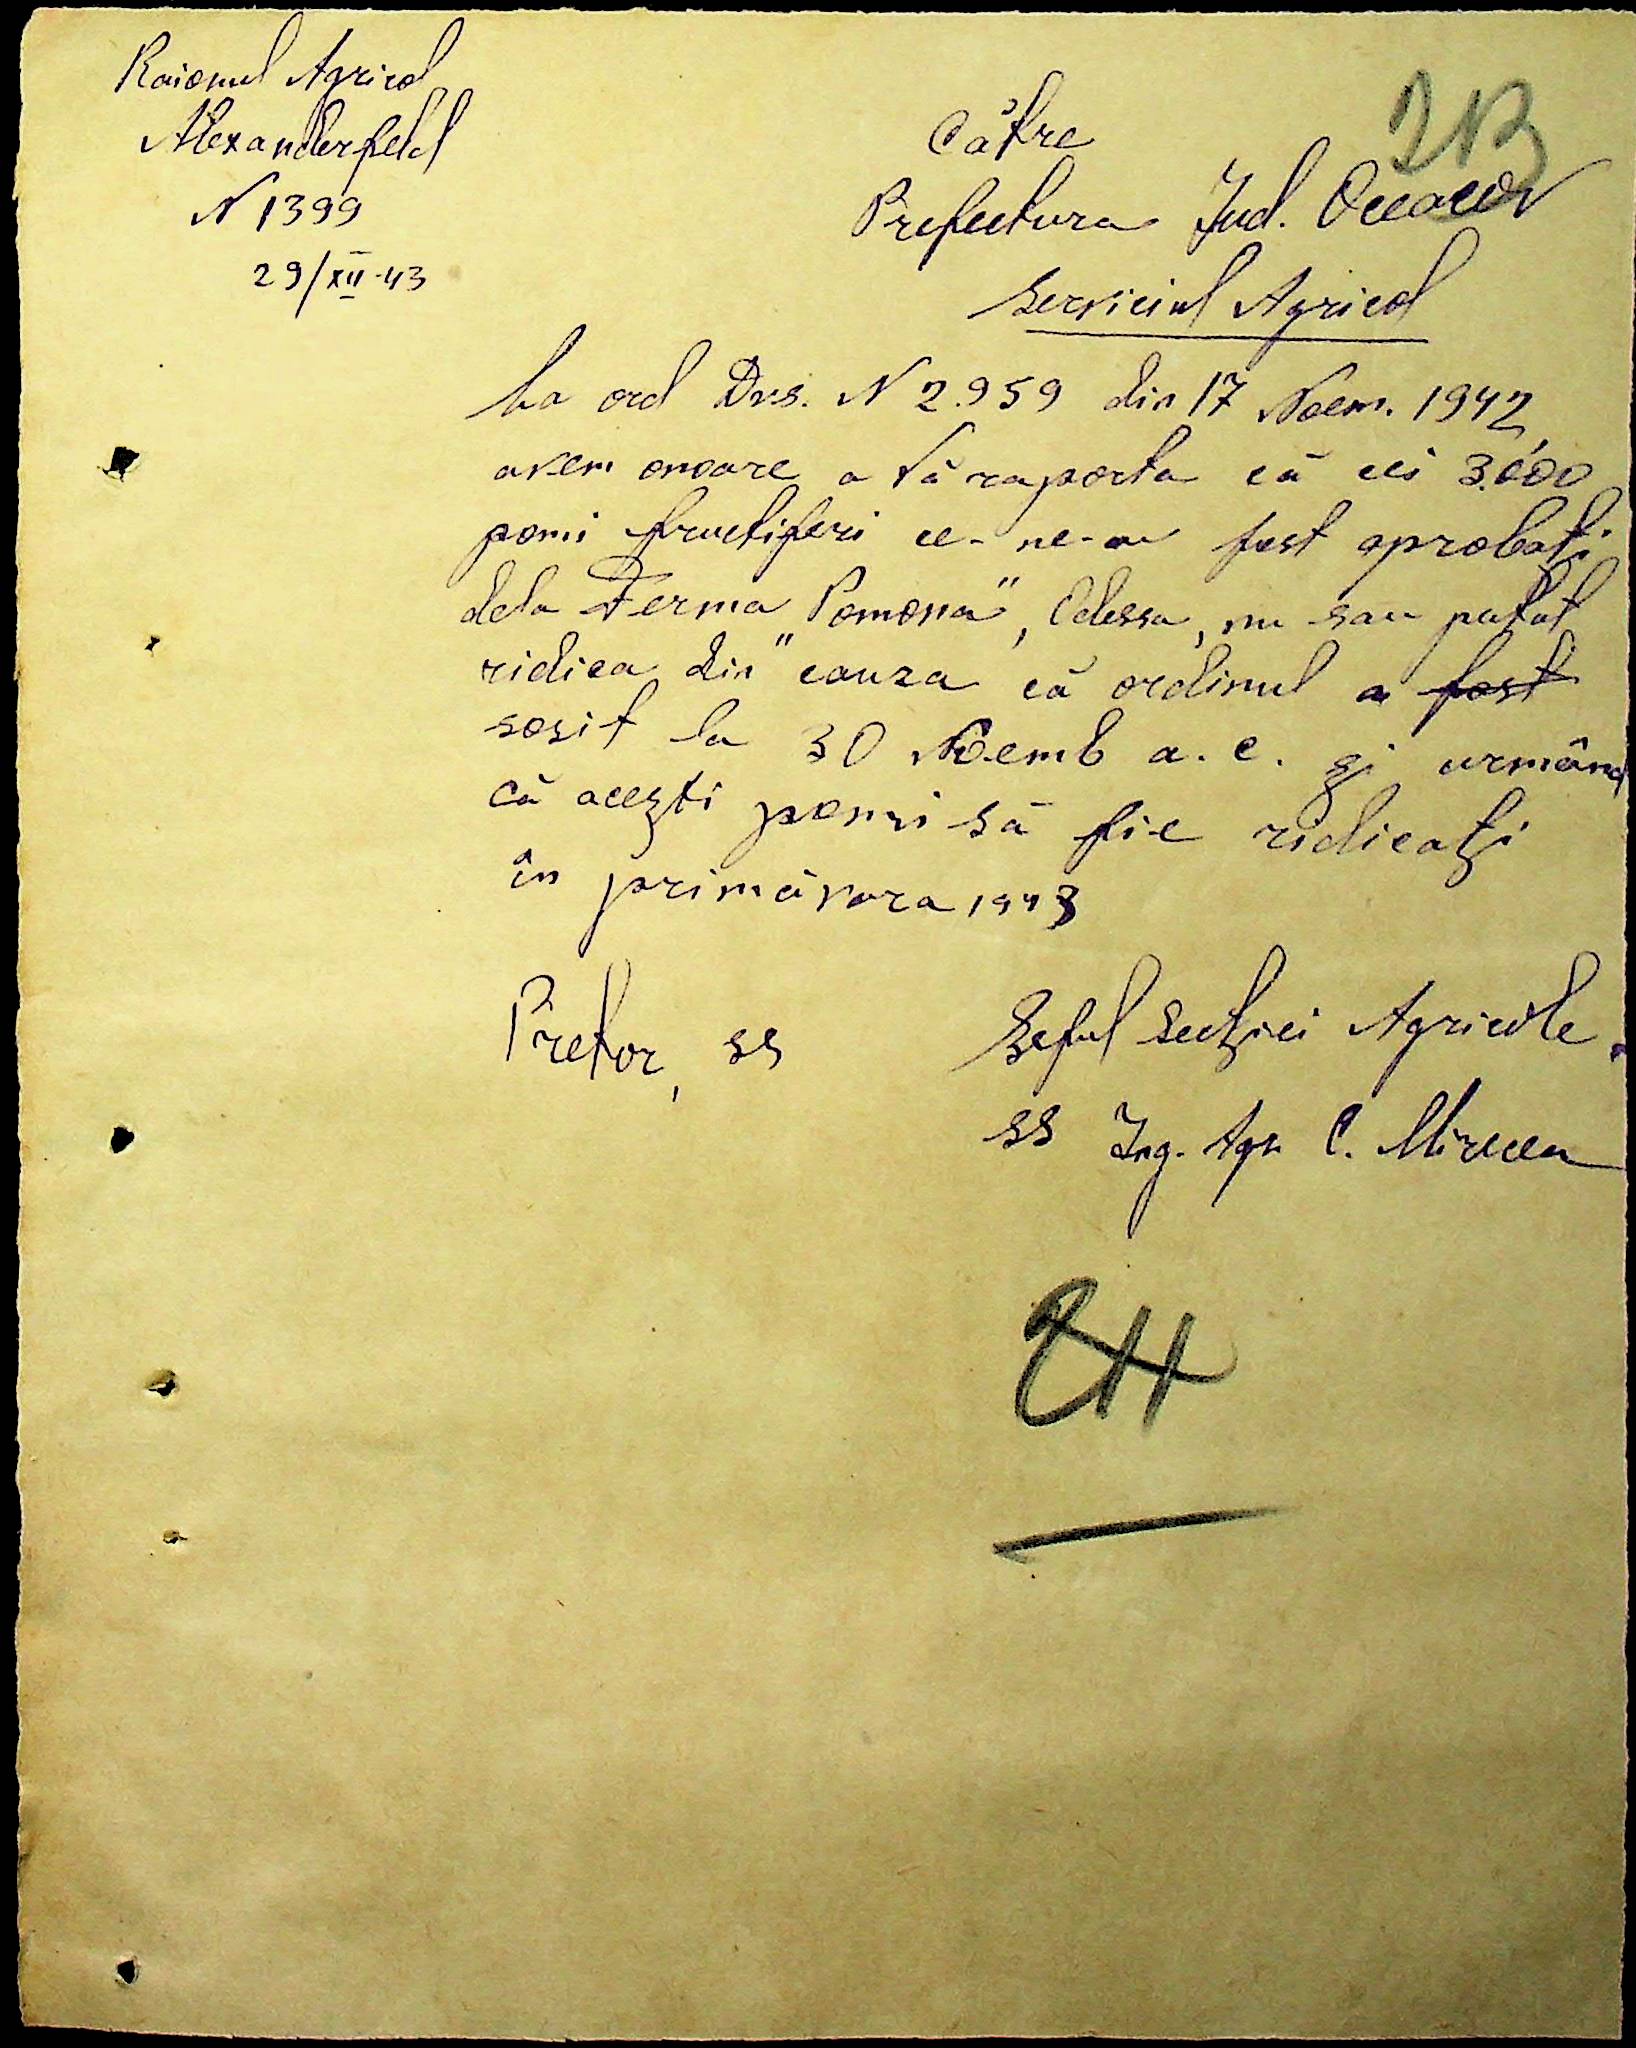 Raionul Agricol
Alexanderfeld
N 1399
29/XII-43
Către
Prefectura Jud. Oceacov
Serviciul Agricol
La ord Dvs. N 2.959 din 17 Noem. 1942,
avem onoare a Vă raporta că cei 3.000
pomi fructiferi ce-ne-au fost aprobați
dela Ferma "Pomona", Odessa, nu sau putut
ridica din cauza că ordinul a fost
sosit la 30 Noemb a.c. și urmând
că acești pomi să fie ridicați
în primăvara 1943
Pretor, ss
Șeful Secției Agricole
ss Ing. Agr C. Mircea